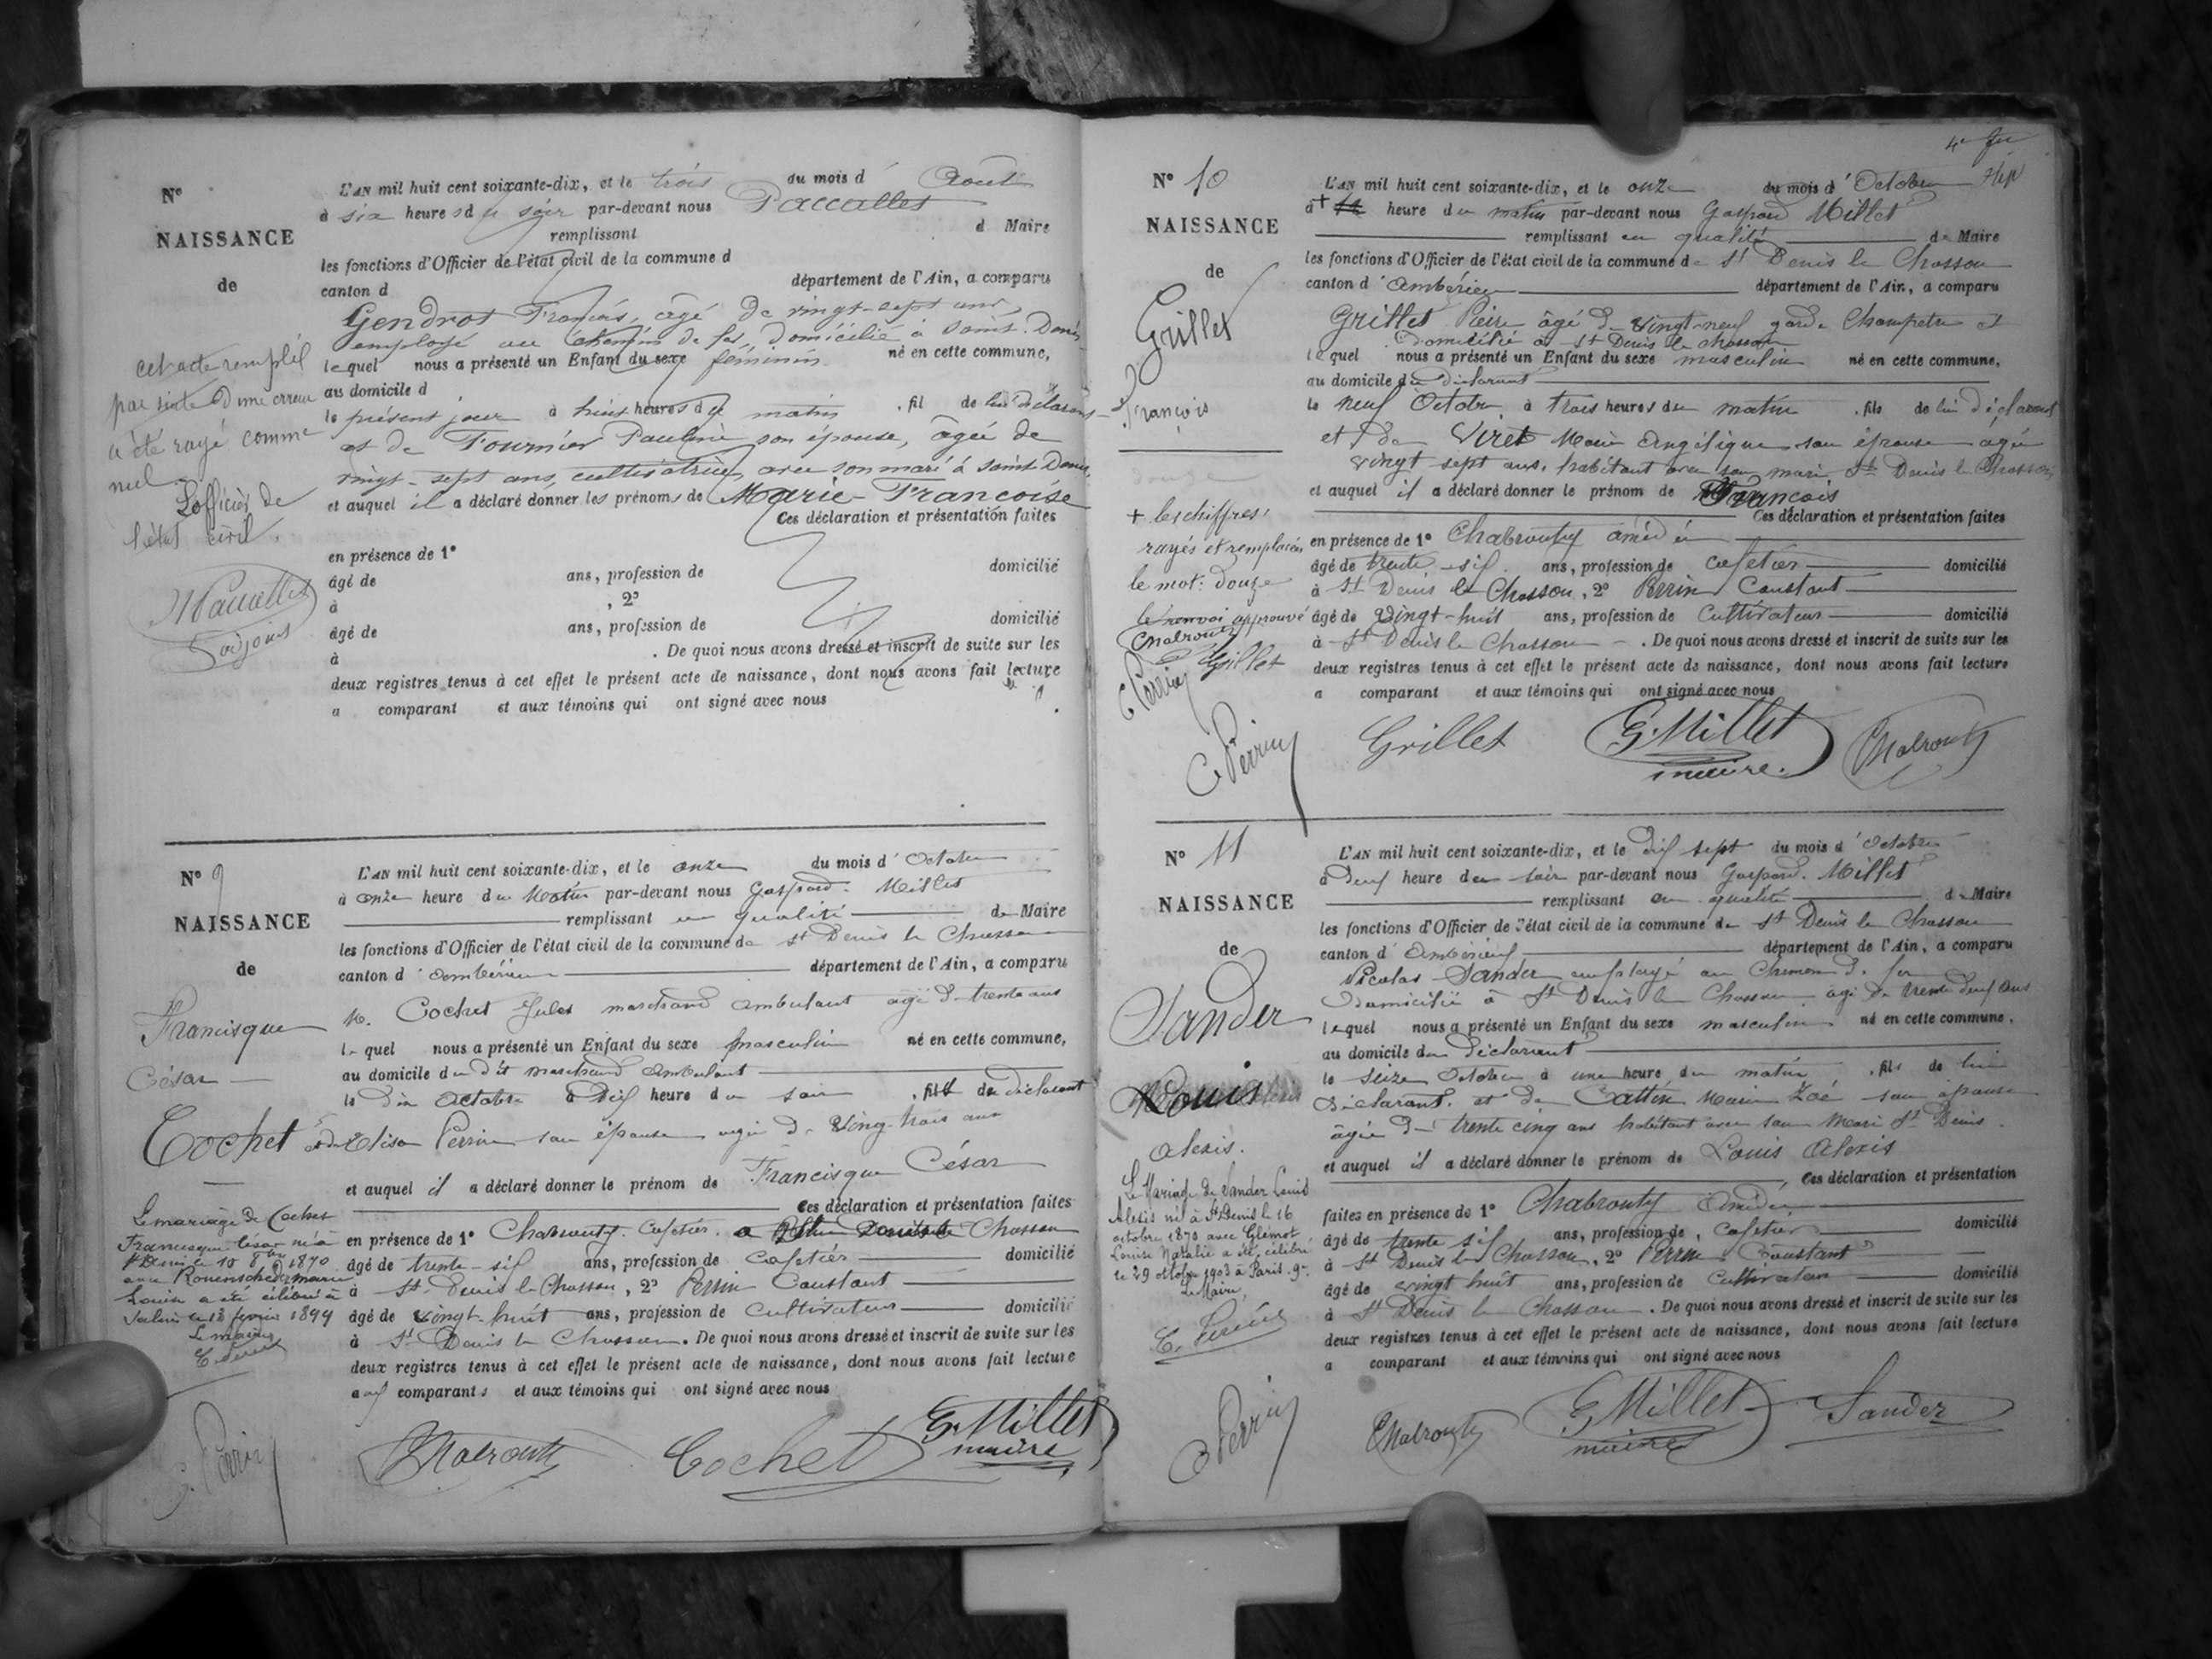 N°
NAISSANCE
de
L'AN mil huit cent soixante-dix, et le trois du mois d Aout
à six heures du soir par-devant nous Paccallet
remplissant d Maire
les fonctions d'Officier de l'état civil de la commune d
canton d département de l'Ain, a comparu
Gendrot François, âgé de vingt-sept ans
employé au chemin de fer, domicilié à Saint-Denis
lequel nous a présenté un Enfant du sexe féminin né en cette commune,
au domicile d
le présent jour à huit heures du matin , fil de lui déclarant
et de Fournier Pauline son épouse, âgée de
vingt-sept ans, cultivatrice, avec son mari à Saint Denis
et auquel il a déclaré donner les prénoms de Marie-Francoise
Ces déclaration et présentation faites
en présence de 1°
âgé de ans, profession de domicilié
à , 2°
âgé de ans, profession de domicilié
à . De quoi nous avons dressé et inscrit de suite sur les
deux registres tenus à cet effet le présent acte de naissance, dont nous avons fait lecture
a comparant et aux témoins qui ont signé avec nous
cet acte rempli
par suite d'une erreur
a été rayé comme
nul
L'officier de
l'état civil.
N° 9
NAISSANCE
de
Francisque
César
Cochet
L'AN mil huit cent soixante-dix, et le onze du mois d'Octobre
à onze heure du Matin par-devant nous Gaspard Millet
remplissant en qualité de Maire
les fonctions d'Officier de l'état civil de la commune de St Denis le Chosson
canton d'Ambérieu département de l'Ain, a comparu
M. Cochet Jules marchand ambulant agé de trente ans
le quel nous a présenté un Enfant du sexe masculin né en cette commune,
au domicile du dit marchand ambulant
le dix Octobre à dix heure du soir , fils du déclarant
et de Elisa Perrin son épouse agée de vingt-trois ans
et auquel il a déclaré donner le prénom de Francisque César
Ces déclaration et présentation faites
en présence de 1° Chabrouty Cafetier a Chosson
âgé de trente-six ans, profession de cafetier domicilié
à St Denis le Chosson, 2° Perrin Constant
âgé de vingt-huit ans, profession de cultivateur domicilié
à St Denis le Chosson. De quoi nous avons dressé et inscrit de suite sur les
deux registres tenus à cet effet le présent acte de naissance, dont nous avons fait lecture
aux comparants et aux témoins qui ont signé avec nous
Le mariage de Cochet
Francisque César né à
St Denis le 10 8bre 1870
avec Marie
Louise a été célébré à
le 18 février 1899
Le maire
C. Perrin
Chabrouty Cochet G. Millet
maire
4e fer
N° 10
NAISSANCE
de
Grillet
François
L'AN mil huit cent soixante-dix, et le onze du mois d'Octobre
à + 12 heure du matin par-devant nous Gaspard Millet
remplissant en qualité de Maire
les fonctions d'Officier de l'état civil de la commune de St Denis le Chosson
canton d'Ambérieu département de l'Ain, a comparu
Grillet Pierre âgé de vingt-neuf garde champetre et
domicilié à St Denis le chosson
lequel nous a présenté un Enfant du sexe masculin né en cette commune,
au domicile du déclarant
le neuf Octobre à trois heures du matin , fils de lui déclarant
et de Viret Marie Angélique son épouse agée
vingt sept ans, habitant avec son mari St Denis le Chosson
et auquel il a déclaré donner le prénom de François
Ces déclaration et présentation faites
en présence de 1° Chabrouty amédée
âgé de trente-six ans, profession de cafetier domicilié
à St Denis le Chosson, 2° Perrin Constant
âgé de vingt-huit ans, profession de cultivateur domicilié
à St Denis le Chosson. De quoi nous avons dressé et inscrit de suite sur les
deux registres tenus à cet effet le présent acte de naissance, dont nous avons fait lecture
a comparant et aux témoins qui ont signé avec nous
+ les chiffres
rayés et remplacés
le mot: douze
le renvoi approuvé
Chabrouty
Grillet
C Perrin
C Perrin Grillet G. Millet Chabrouty
maire.
N° 11
NAISSANCE
de
Sander
Louis
Alexis.
L'AN mil huit cent soixante-dix, et le dix sept du mois d'Octobre
à deux heure du soir par-devant nous Gaspard Millet
remplissant en qualité de Maire
les fonctions d'Officier de l'état civil de la commune de St Denis le Chosson
canton d'Ambérieux département de l'Ain, a comparu
Nicolas Sander employé au Chemin de fer
domicilié à St Denis le Chosson âgé de trente deux ans
lequel nous a présenté un Enfant du sexe masculin né en cette commune.
au domicile du déclarant
le seize Octobre à une heure du matin , fils de lui
déclarant et de Cattin Marie Zoé son épouse
âgée de trente cinq ans habitant avec son Mari St Denis.
et auquel il a déclaré donner le prénom de Louis Alexis
, Ces déclaration et présentation
faites en présence de 1° Chabrouty Amédée
âgé de trente six ans, profession de, cafetier domicilié
à St Denis le Chosson, 2° Perrin Constant
âgé de vingt huit ans, profession de Cultivateur domicilié
à St Denis le Chosson. De quoi nous avons dressé et inscrit de suite sur les
deux registres tenus à cet effet le présent acte de naissance, dont nous avons fait lecture
a comparant et aux témoins qui ont signé avec nous
Le Mariage de Sander Louis
Alexis né à St Denis le 16
octobre 1870 avec Glémot
Louise Natalie a été célébré
le 29 octobre 1903 à Paris. 9e.
Le Maire,
C Perrin Chabrouty G Millet Sander
maire